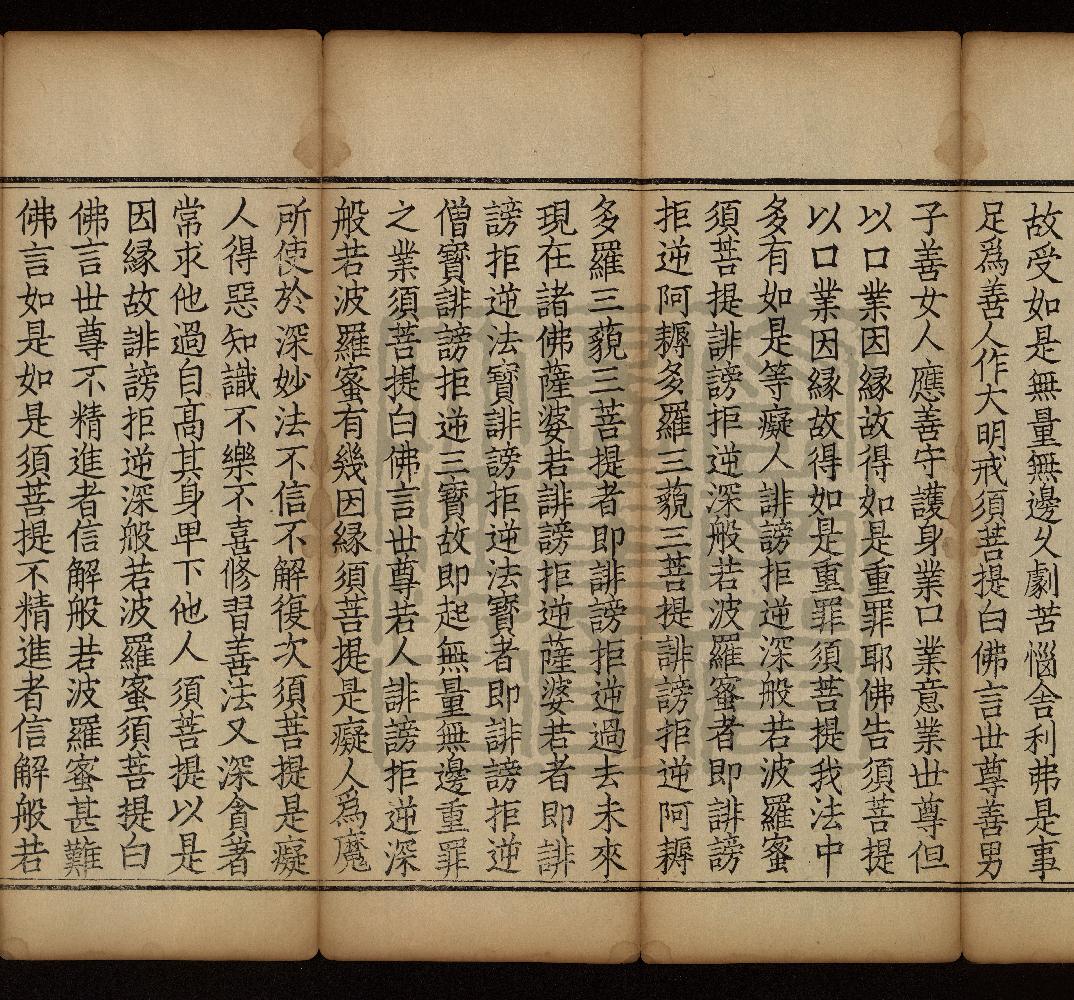 故受如是無量無邊久劇苦惱舍利弗是事
足爲善人作大明戒須菩提白佛言世尊善男
子善女人應善守護身業口業意業世尊但
以口業因緣故得如是重罪耶佛告須菩提
以口業因緣故得如是重罪須菩提我法中
多有如是等癡人誹謗拒逆深般若波羅蜜
須菩提誹謗拒逆深般若波羅蜜者即誹謗
拒逆阿耨多羅三藐三菩提誹謗拒逆阿耨
多羅三藐三菩提者即誹謗拒逆過去未來
現在諸佛薩婆若誹謗拒逆薩婆若者即誹
謗拒逆法寶誹謗拒逆法寶者即誹謗拒逆
僧寶誹謗拒逆三寶故即起無量無邊重罪
之業須菩提白佛言世尊若人誹謗拒逆深
般若波羅蜜有幾因緣須菩提是癡人爲魔
所使於深妙法不信不解復次須菩提是癡
人得惡知識不樂不喜修習善法又深貪著
常求他過自高其身卑下他人須菩提以是
因緣故誹謗拒逆深般若波羅蜜須菩提白
佛言世尊不精進者信解般若波羅蜜甚難
佛言如是如是須菩提不精進者信解般若